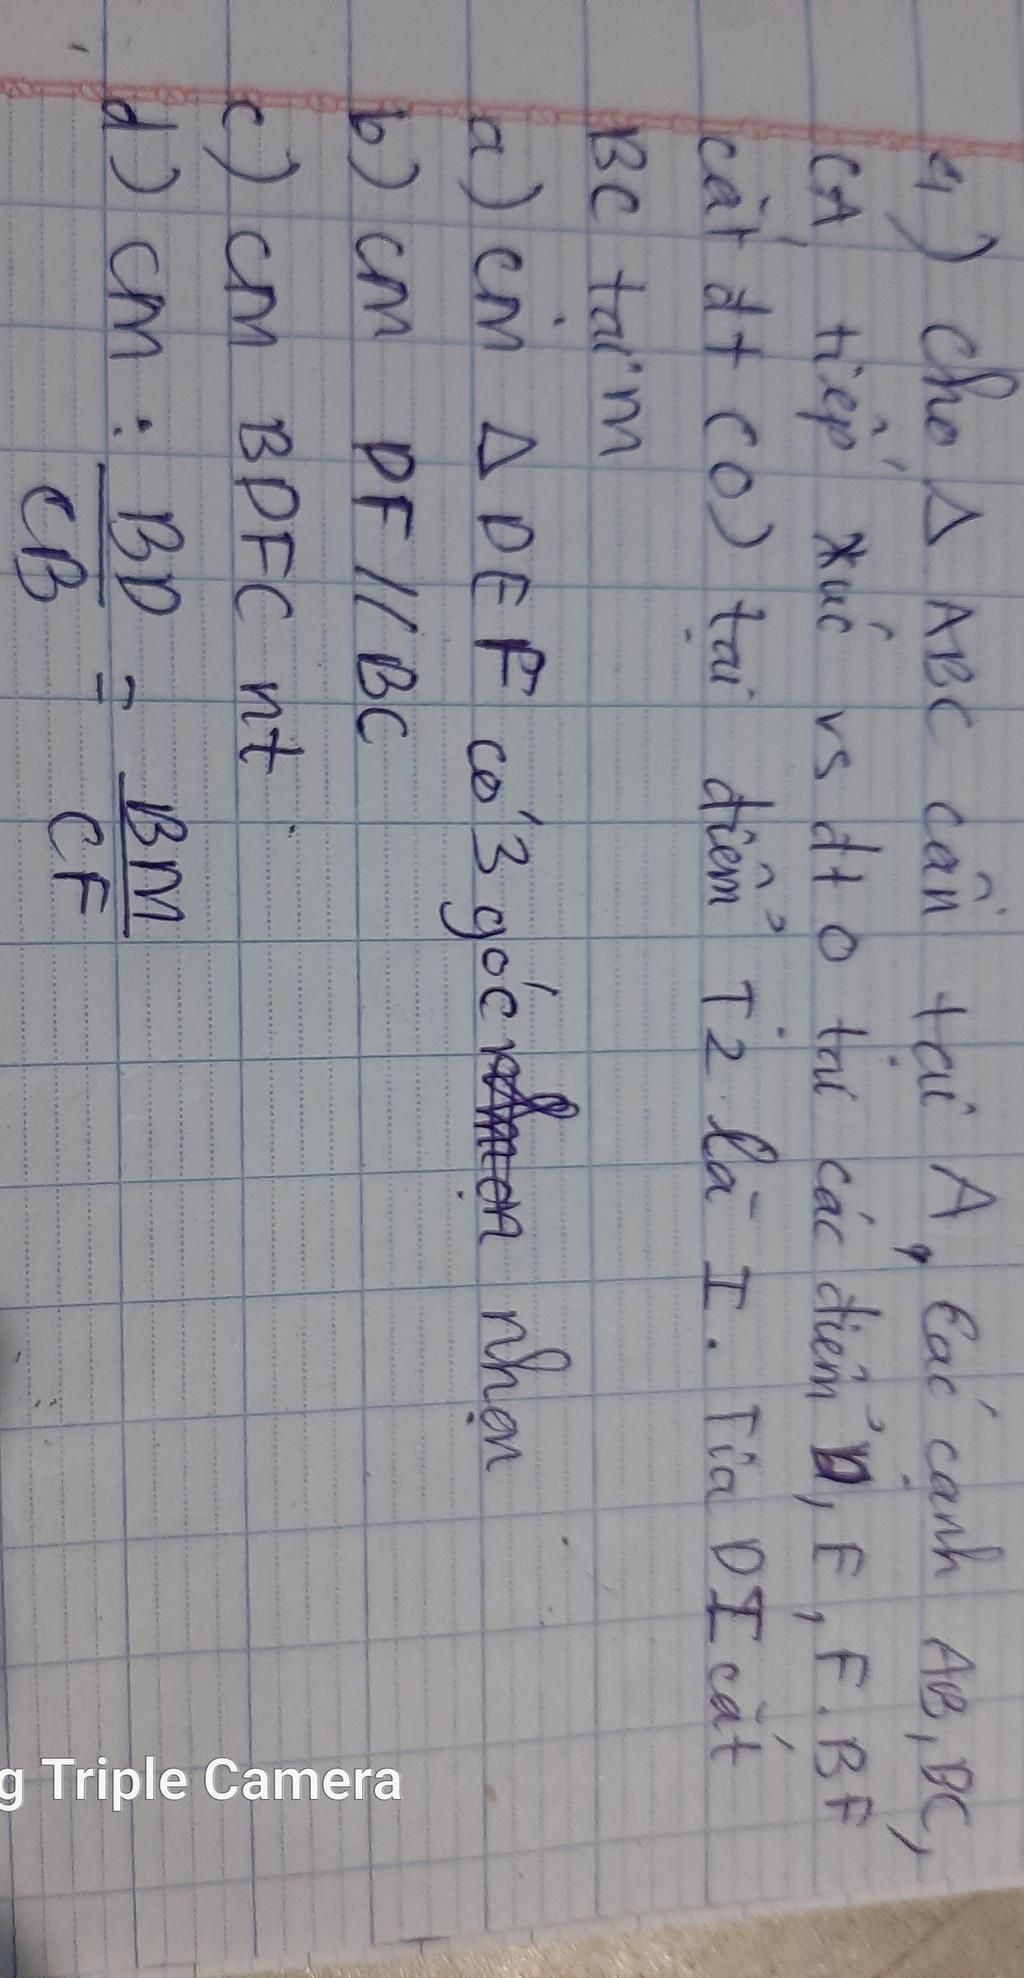 4) Cho Δ ABC cân tại A, các cạnh AB, BC,
CA tiếp xúc vs đt O tại các điểm D, E, F. BF
cắt đt (O) tại điểm T2 là I. Tia DI cắt
BC tại M
a) CM Δ DEF có 3 góc nhọn
b) CM DF // BC
c) CM BDFC nt
d) CM : BD/CB = BM/CF
g Triple Camera